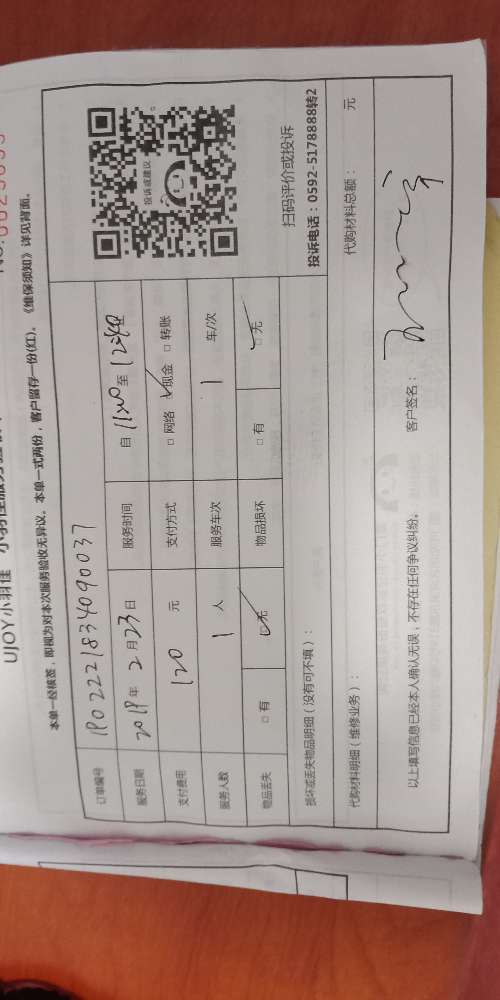 UJOY小羽佳
本单一经核签，即视为对本次服务验收无异议。本单一式两份，客户留存一份(红)。《维保须知》详见背面。
订单编号 1902221834090037
服务日期 2019年2月23日 服务时间 自 11:20 至
支付费用 120 元 支付方式 □网络 ☑现金 □转账
服务人数 1 人 服务车次 1 车/次
物品丢失 □有 ☑无 物品损坏 □有 ☑无
投诉或建议
扫码评价或投诉
投诉电话：0592-5178888转2
损坏或丢失物品明细（没有可不填）：
代购材料明细（维修业务）： 代购材料总额： 元
以上填写信息已经本人确认无误，不存在任何争议纠纷。 客户签名：